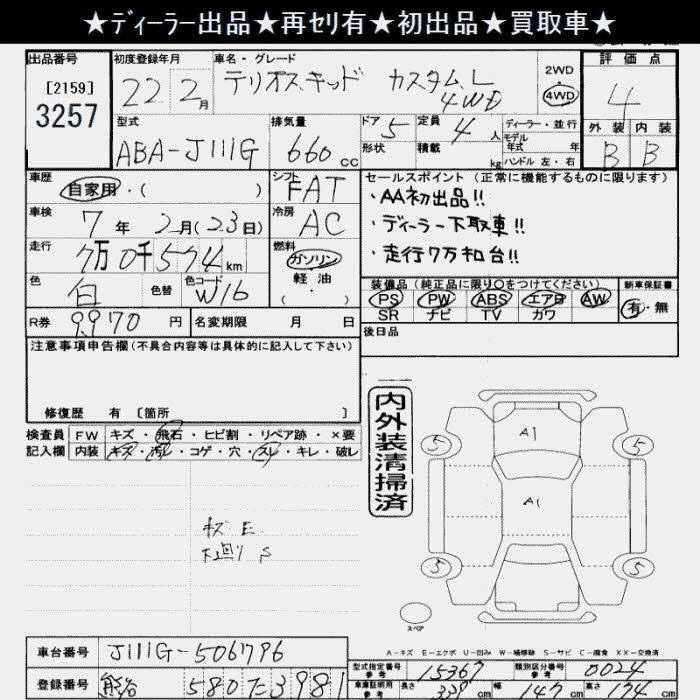 ★ディーラー出品★再セリ有★初出品★買取車★
出品番号
[2159]
3257
初度登録年月
22年2月
車名・グレード
テリオスキッド カスタムL
4WD
2WD
・
4WD
評価点
4
外装 内装
B B
型式
ABA-J111G
排気量
660cc
ドア 5
形状
定員 4人
積載 kg
ディーラー・並行
モデル
年式 年
ハンドル 左・右
車歴
自家用・( )
シフト
FAT
車検
7年2月(23日)
冷房
AC
走行
7万0千574km
燃料
ガソリン
軽油
( ・ )
色
白
色替
色コード
W16
R券 9970円
名変期限 月 日
セールスポイント(正常に機能するものに限ります)
・AA初出品!!
・ディーラー下取車!!
・走行7万和台!!
装備品(純正品に限り○をつけてください)
PS PW ABS エアB AW
SR ナビ TV カワ
新車保証書
有・無
後日品
注意事項申告欄(不具合内容等は具体的に記入して下さい)
修復歴 有 [箇所 ]
検査員
記入欄
FW キズ・飛石・ヒビ割・リペア跡・×要
内装 キズ・汚レ・コゲ・穴・スレ・キレ・破レ
キズ E
下廻り S
内外装清掃済
A1
A1
5
5
5
5
スペア
A-キズ E-エクボ U-凹み W-補修跡 S-サビ C-腐食 XX-交換済
車台番号 J111G-506796
登録番号 熊谷 580 モ 3981
型式指定番号
参考
15367
類別区分番号
参考
0024
車庫証明用
参考
長さ 339cm 幅 147cm 高さ 174cm